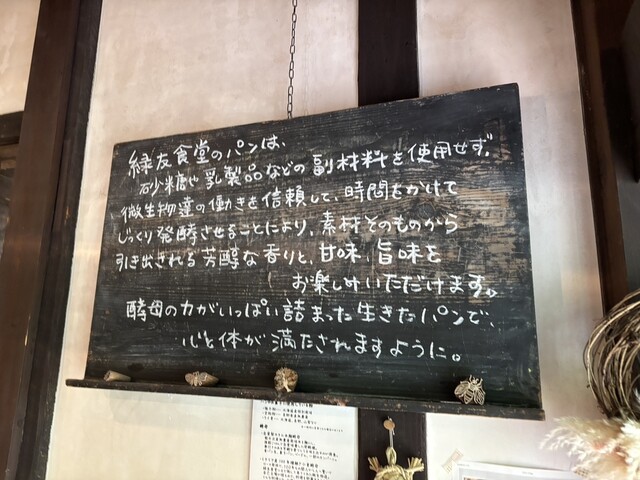 緑友食堂のパンは、
砂糖や乳製品などの副材料を使用せず、
微生物達の働きを信頼して、時間をかけて
じっくり発酵させることにより、素材そのものから
引き出される芳醇な香りと、甘味、旨味を
お楽しみいただけます。
酵母の力がいっぱい詰まった生きたパンで、
心と体が満たされますように。